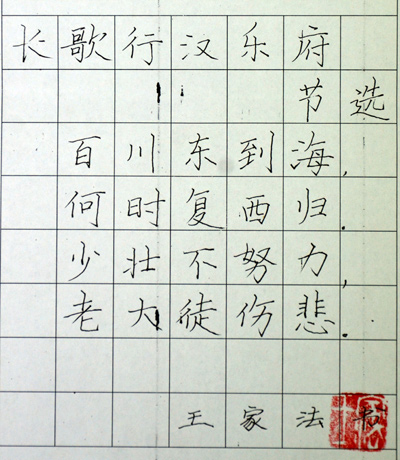 长歌行汉乐府
节选
百川东到海，
何时复西归．
少壮不努力，
老大徒伤悲．
王家法书